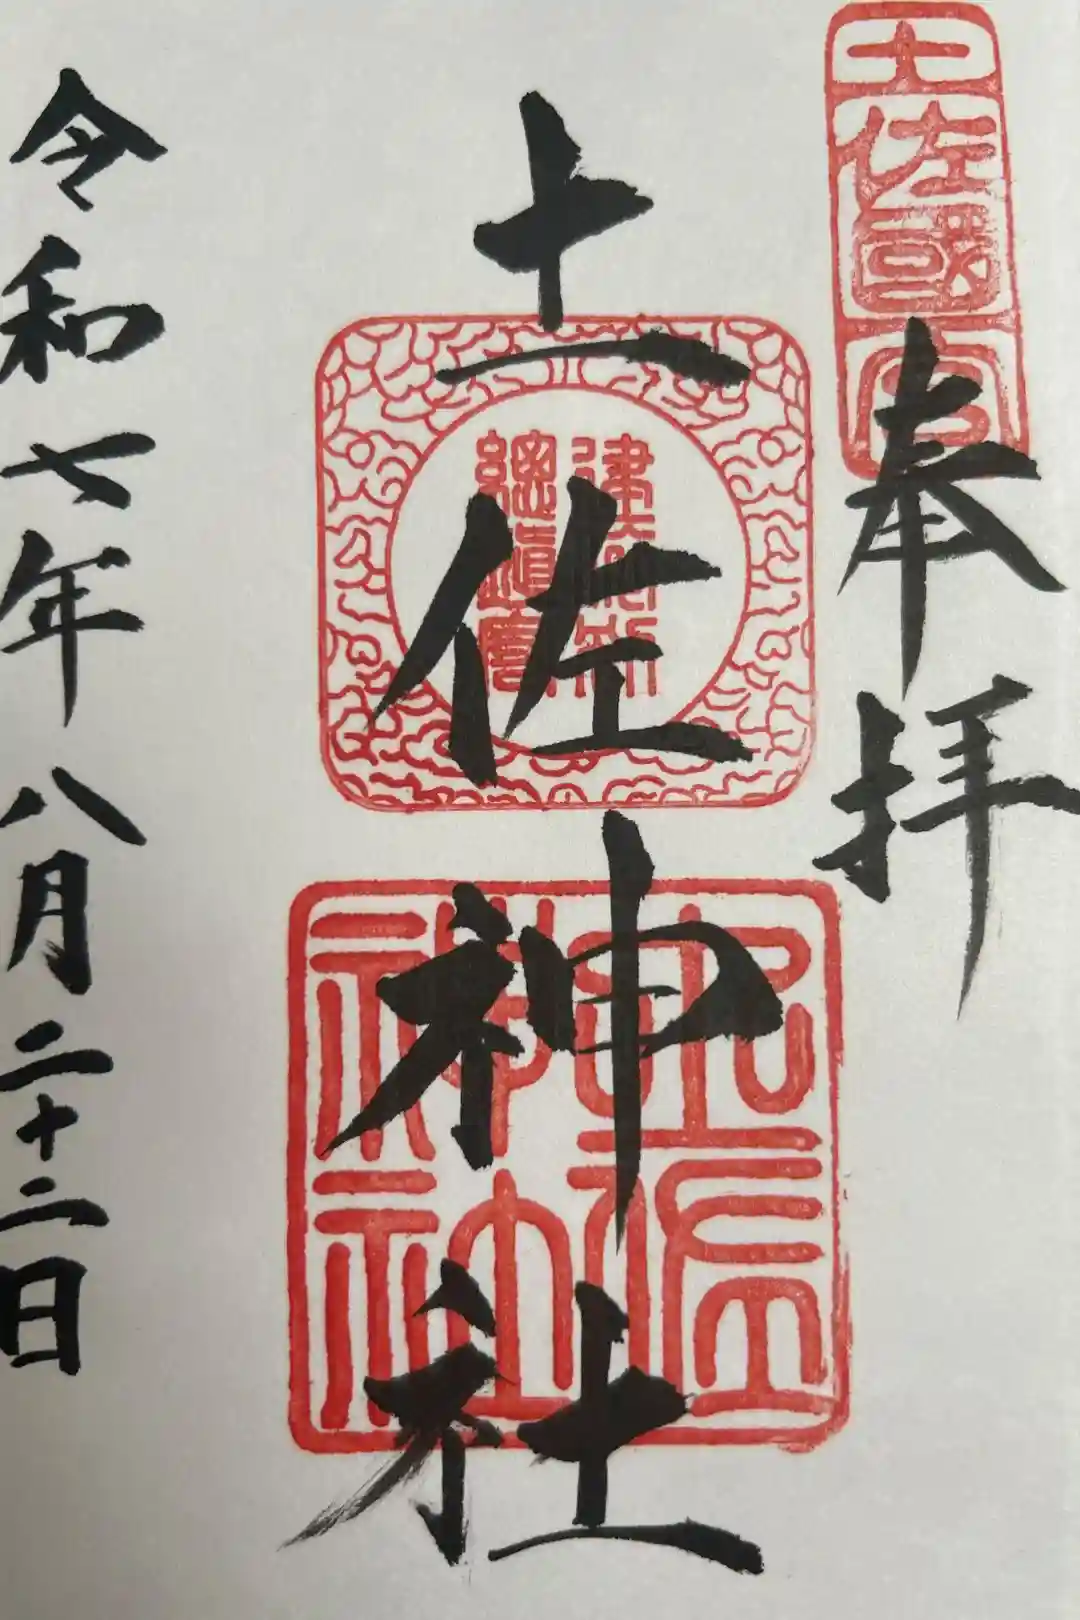 土佐國一宮
奉拝
土佐神社
土佐神社
令和七年八月二十二日